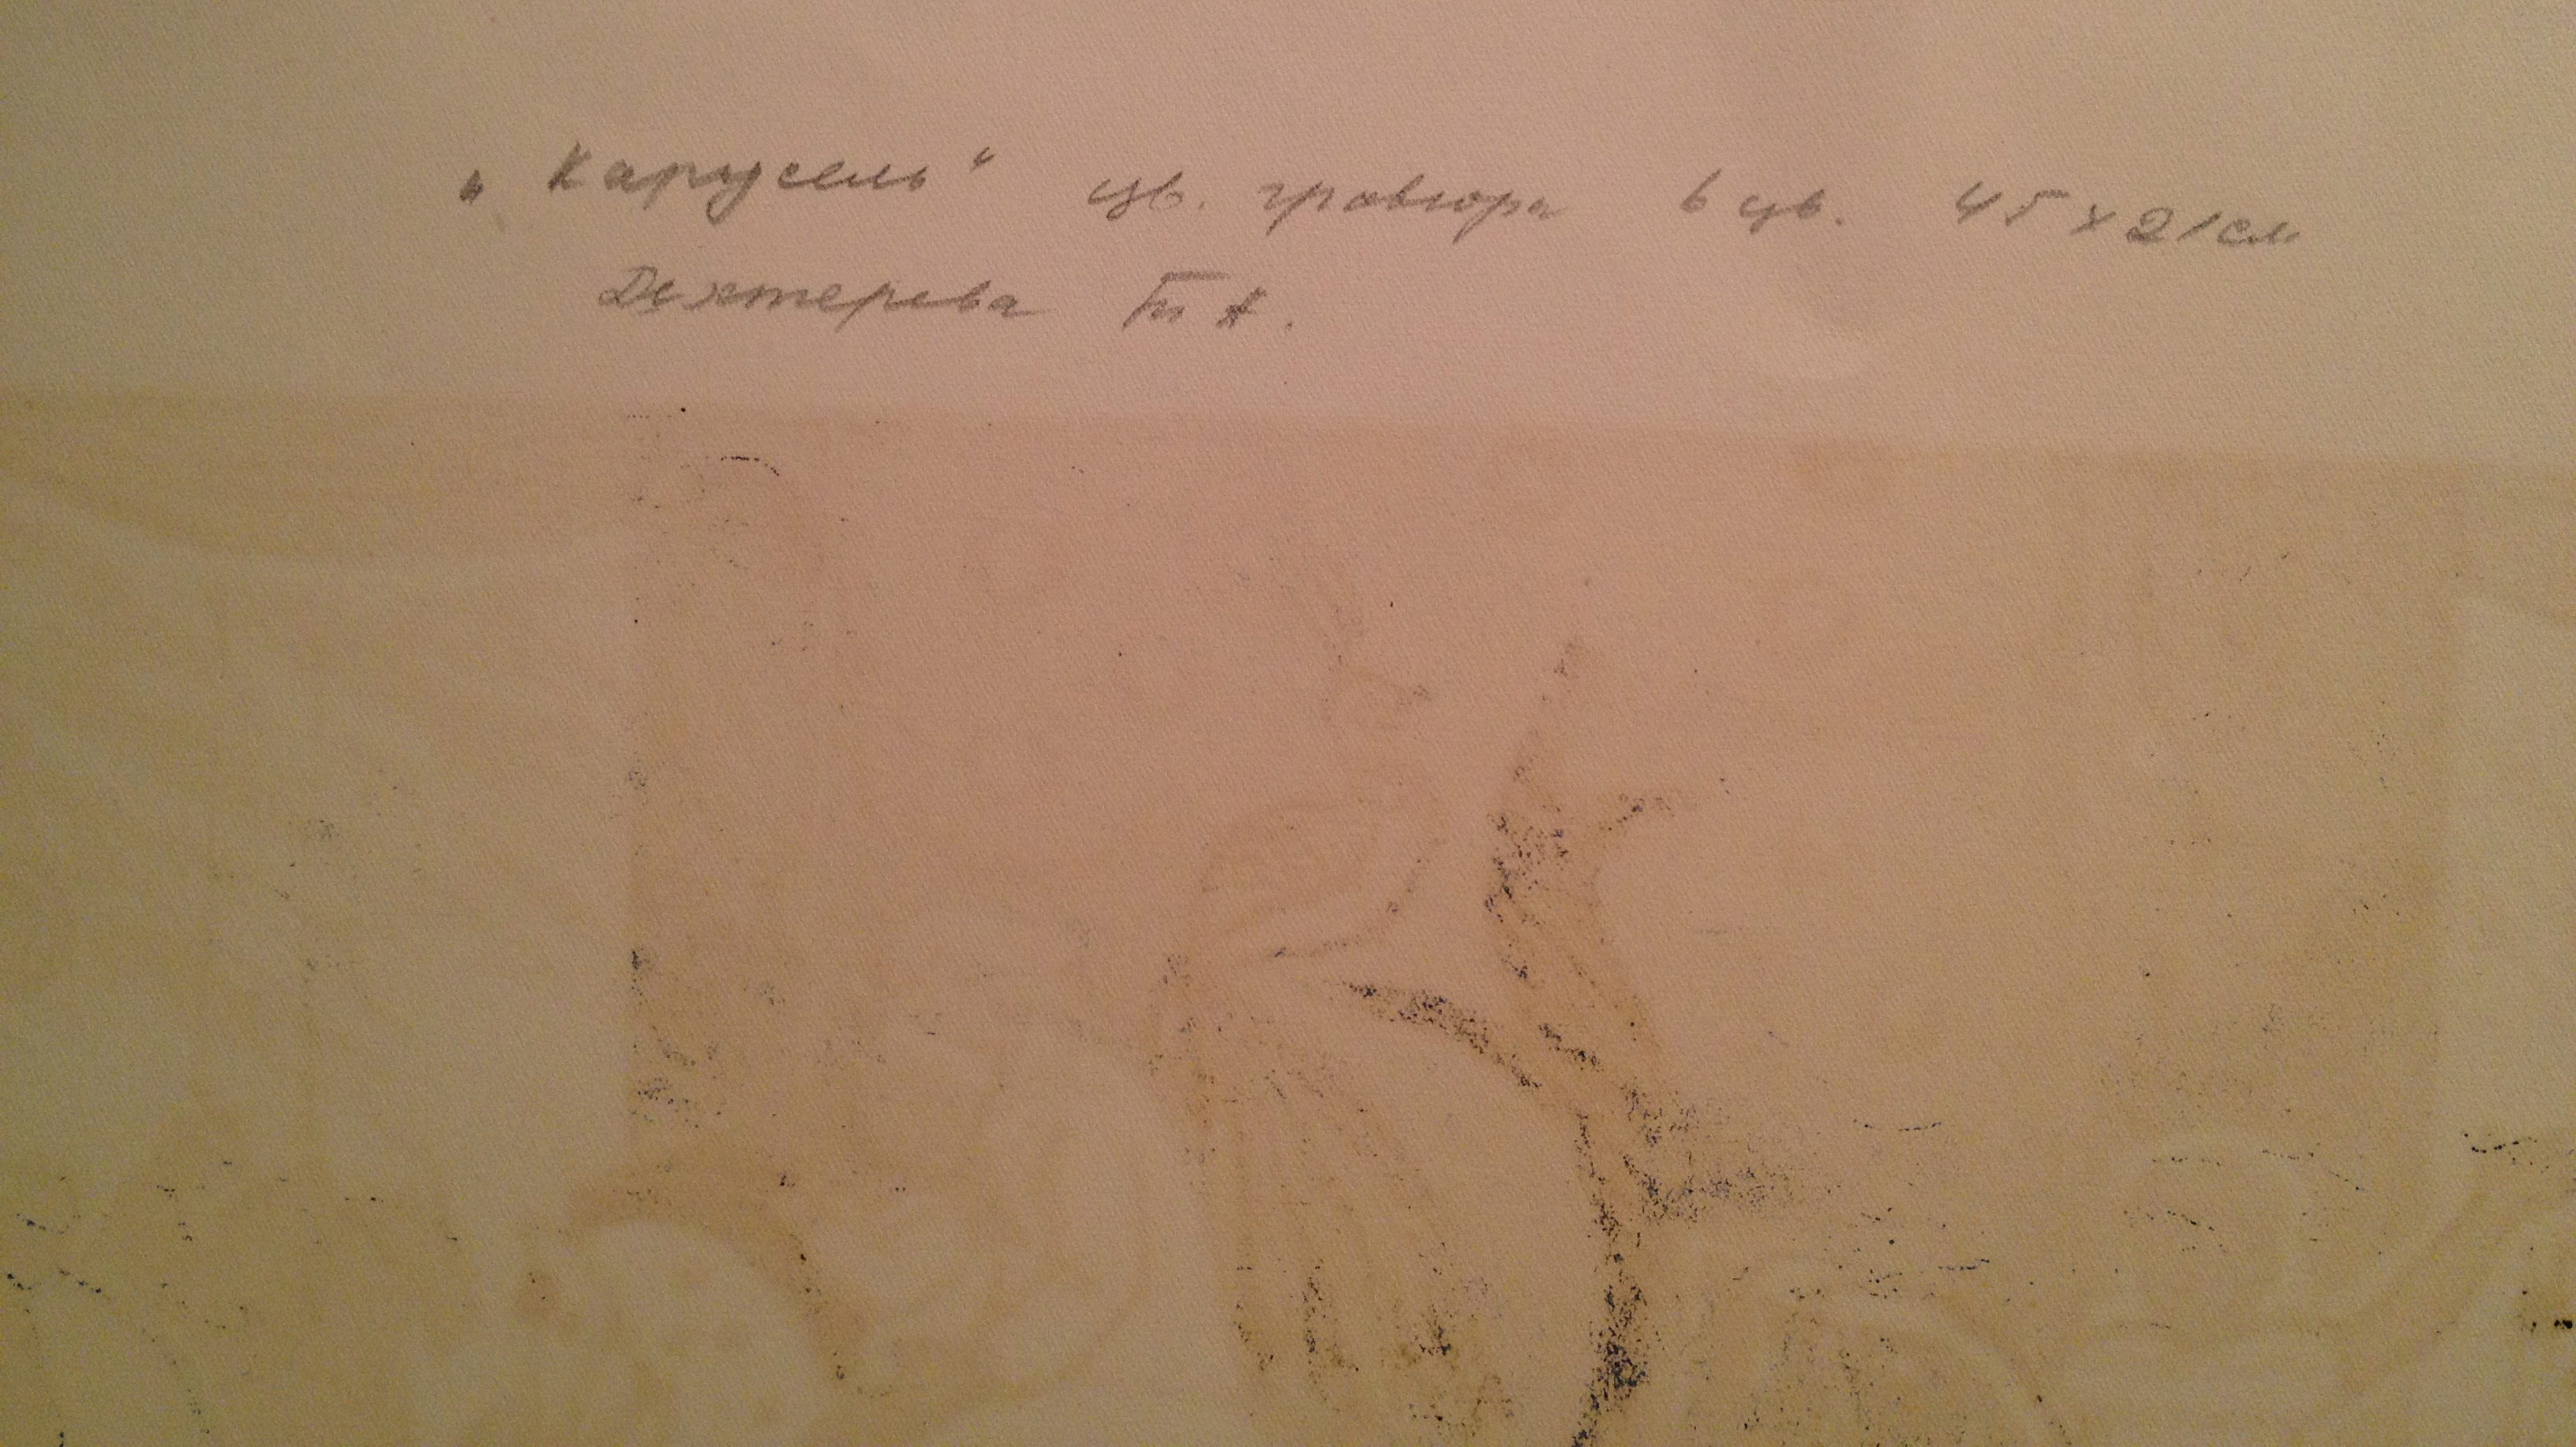 „Карусель“ цв. гравюра 6 цв. 45 х 21 см
Дехтерева Т А.